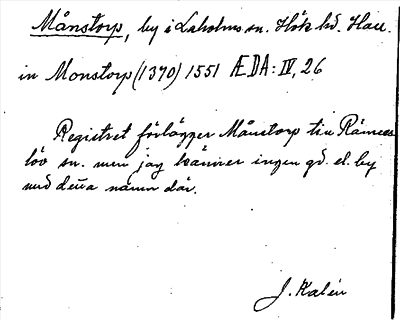 Månstorp, by i Laholms sn. Hök hd. Hall.
in Monstorp (1370) 1551 ÆDA: IV, 26
Registret förlägger Månstorp till Ränneslöv
sn. men jag känner ingen gd. el. by
med detta namn där.
J. Kalén